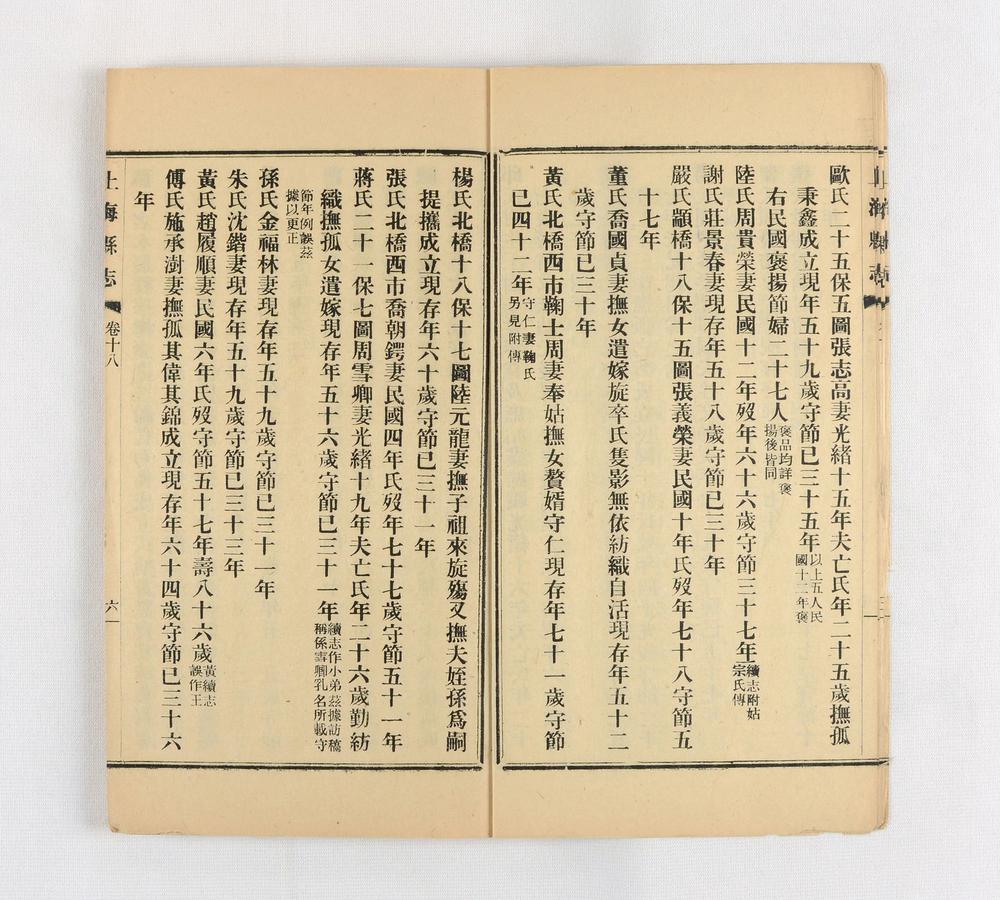 歐氏二十五保五圖張志高妻光緒十五年夫亡氏年二十五歲撫孤
秉鑫成立現年五十九歲守節已三十五年以上五人民國十二年褒
右民國褒揚節婦二十七人褒品均詳褒揚後皆同
陸氏周貴榮妻民國十二年歿年六十六歲守節三十七年續志附姑宗氏傳
謝氏莊景春妻現存年五十八歲守節已三十年
嚴氏顓橋十八保十五圖張義榮妻民國十年氏歿年七十八守節五
十七年
董氏喬國貞妻撫女遣嫁旋卒氏隻影無依紡織自活現存年五十二
歲守節已三十年
黃氏北橋西市鞠士周妻奉姑撫女贅婿守仁現存年七十一歲守節
已四十二年守仁妻鞠氏另見附傳
楊氏北橋十八保十七圖陸元龍妻撫子祖來旋殤又撫夫姪孫爲嗣
提攜成立現存年六十歲守節已三十一年
張氏北橋西市喬朝鍔妻民國四年氏歿年七十七歲守節五十一年
蔣氏二十一保七圖周雪卿妻光緒十九年夫亡氏年二十六歲勤紡
織撫孤女遣嫁現存年五十六歲守節已三十一年續志作小弟茲據訪稿稱係雪卿乳名所載守
節年例誤茲據以更正
孫氏金福林妻現存年五十九歲守節已三十一年
朱氏沈鍇妻現存年五十九歲守節已三十三年
黃氏趙履順妻民國六年氏歿守節五十七年壽八十六歲黃續志誤作王
傅氏施承澍妻撫孤其偉其錦成立現存年六十四歲守節已三十六
年
上海縣志
卷十八
六